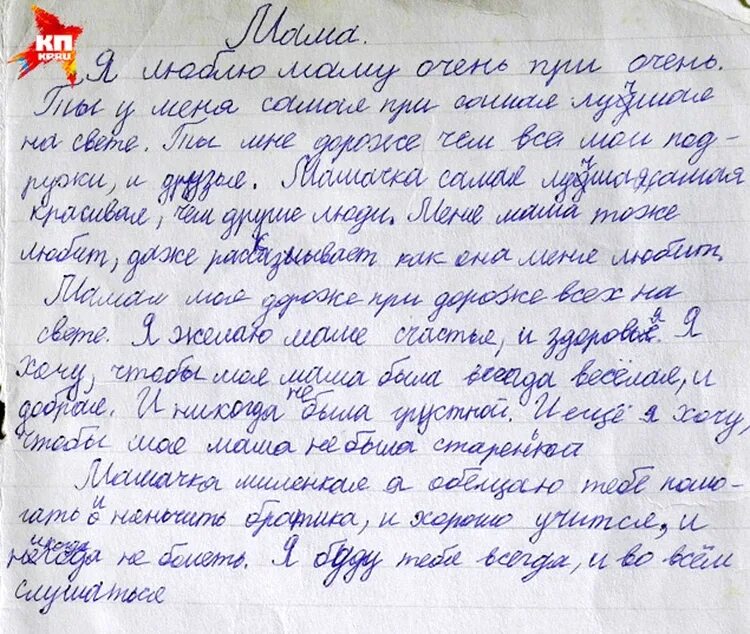 КП
KP.RU
Мама.
Я люблю маму очень при очень.
Ты у меня самая при самая лучшая
на свете. Ты мне дороже чем все мои под-
ружки, и друзья. Мамачка самая лучшая самая
красивая, чем другие люди. Меня мама тоже
любит, даже рассказывает как она меня любит.
Мамая моя дороже при дороже всех на
свете. Я желаю маме счастья, и здоровья. Я
хочу, чтобы моя мама была всегда весёлая, и
добрая. И никогда не была грустной. И ещё я хочу,
чтобы моя мама не была старенкой
Мамачка миленкая я обещаю тебе помо-
гать и няньчить братика, и хорошо учится, и
никогда не болеть. Я буду тебя всегда, и во всём
слушаться